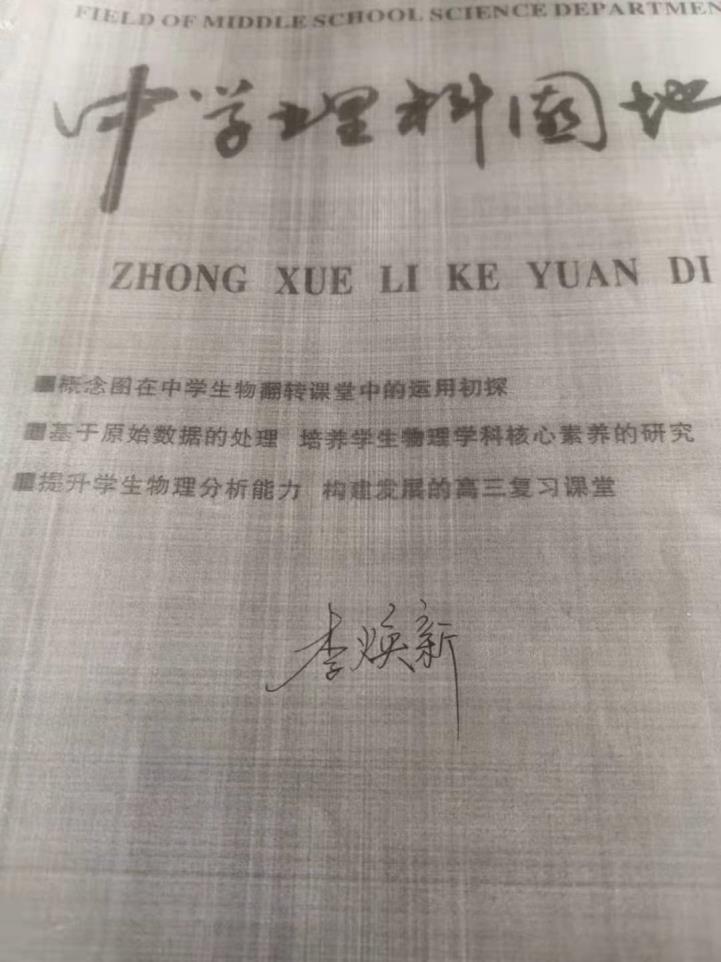 FIELD OF MIDDLE SCHOOL SCIENCE DEPARTMEN
中学理科园地
ZHONG XUE LI KE YUAN DI
■概念图在中学生物翻转课堂中的运用初探
■基于原始数据的处理 培养学生物理学科核心素养的研究
■提升学生物理分析能力 构建发展的高三复习课堂
李焕新